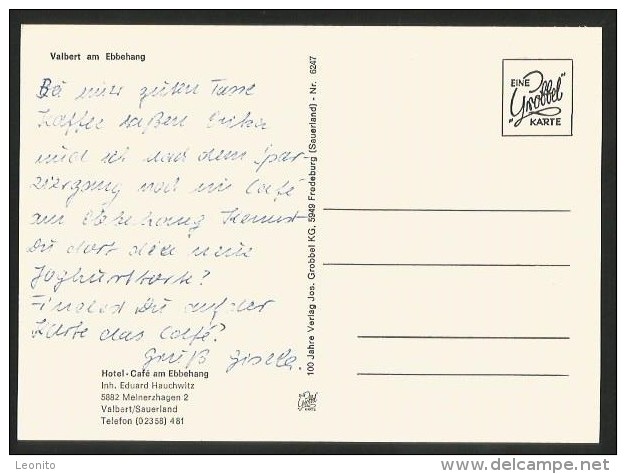 Valbert am Ebbehang
Bei einer guten Tasse
Kaffee saßen Erika
und ich nach dem Spa-
ziergang noch im Café
am Ebbehang. Kennst
Du dort die neue
Joghurttorte?
Findest Du auf der
Karte das Café?
Gruß Gisela.
Hotel-Café am Ebbehang
Inh. Eduard Hauchwitz
5882 Meinerzhagen 2
Valbert/Sauerland
Telefon (02358) 481
100 Jahre Verlag Jos. Grobbel KG, 5949 Fredeburg (Sauerland) - Nr. 6247
EINE
„Grobbel"
KARTE
Leonito
delcampe.net